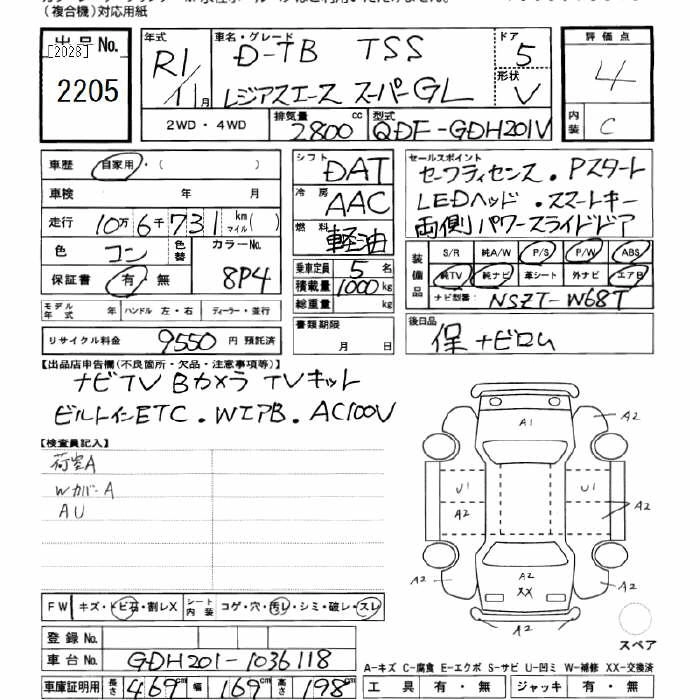 (複合機)対応用紙
出品No.
[2028]
2205
年式
R1/11月
車名・グレード
D-TB TSS
レジアスエース スーパーGL
ドア
5
形状
V
評価点
4
内装
C
2WD・4WD
排気量
2800cc
型式
QDF-GDH201V
車歴 自家用・( )
車検 年 月
走行 10万6千731km マイル( )
色 コン
色替
カラーNo.
8P4
保証書 有・無
モデル年式 年 ハンドル 左・右 ディーラー・並行
リサイクル料金 9550円 預託済
シフト DAT
冷房 AAC
燃料 軽油
乗車定員 5名
積載量 1000kg
総重量 kg
書類期限
月 日
セールスポイント
セーフティセンス・Pスタート
LEDヘッド・スマートキー
両側パワースライドドア
装備品
S/R 純A/W P/S P/W ABS
純TV 純ナビ 革シート 外ナビ エアB
ナビ型番 NSZT-W68T
後日品
保 ナビロム
【出品店申告欄(不良箇所・欠品・注意事項等)】
ナビTV Bカメラ TVキット
ビルトインETC・WエアB・AC100V
【検査員記入】
荷室A
Wカバー A
AU
A1
A2
U1
U1
A2
A2
A2
A2
XX
A2
A2
A2
スペア
FW キズ・トビ石・割レX シート内装 コゲ・穴・汚レ・シミ・破レ・スレ
登録No.
車台No. GDH201-1036118
車庫証明用 長さ 469cm 幅 169cm 高さ 198cm
A-キズ C-腐食 E-エクボ S-サビ U-凹ミ W-補修 XX-交換済
工具 有・無 ジャッキ 有・無